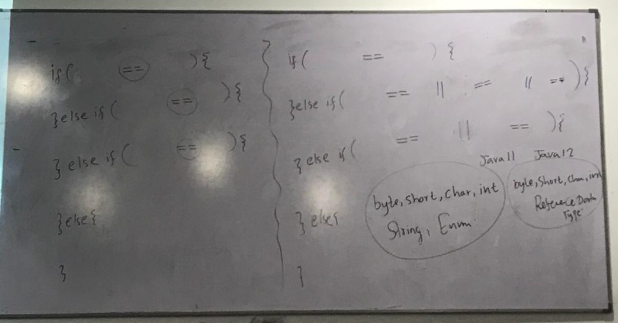 if(     ==     ){
}else if(     ==     ){
}else if(     ==     ){
}else{
}
if(     ==     ){
}else if(     ==     ||     ==     ||     ==     ){
}else if(     ==     ||     ==     ){
}else{
}
Java11
byte, short, char, int
String, Enum
Java12
byte, short, char, int
Reference Data
Type